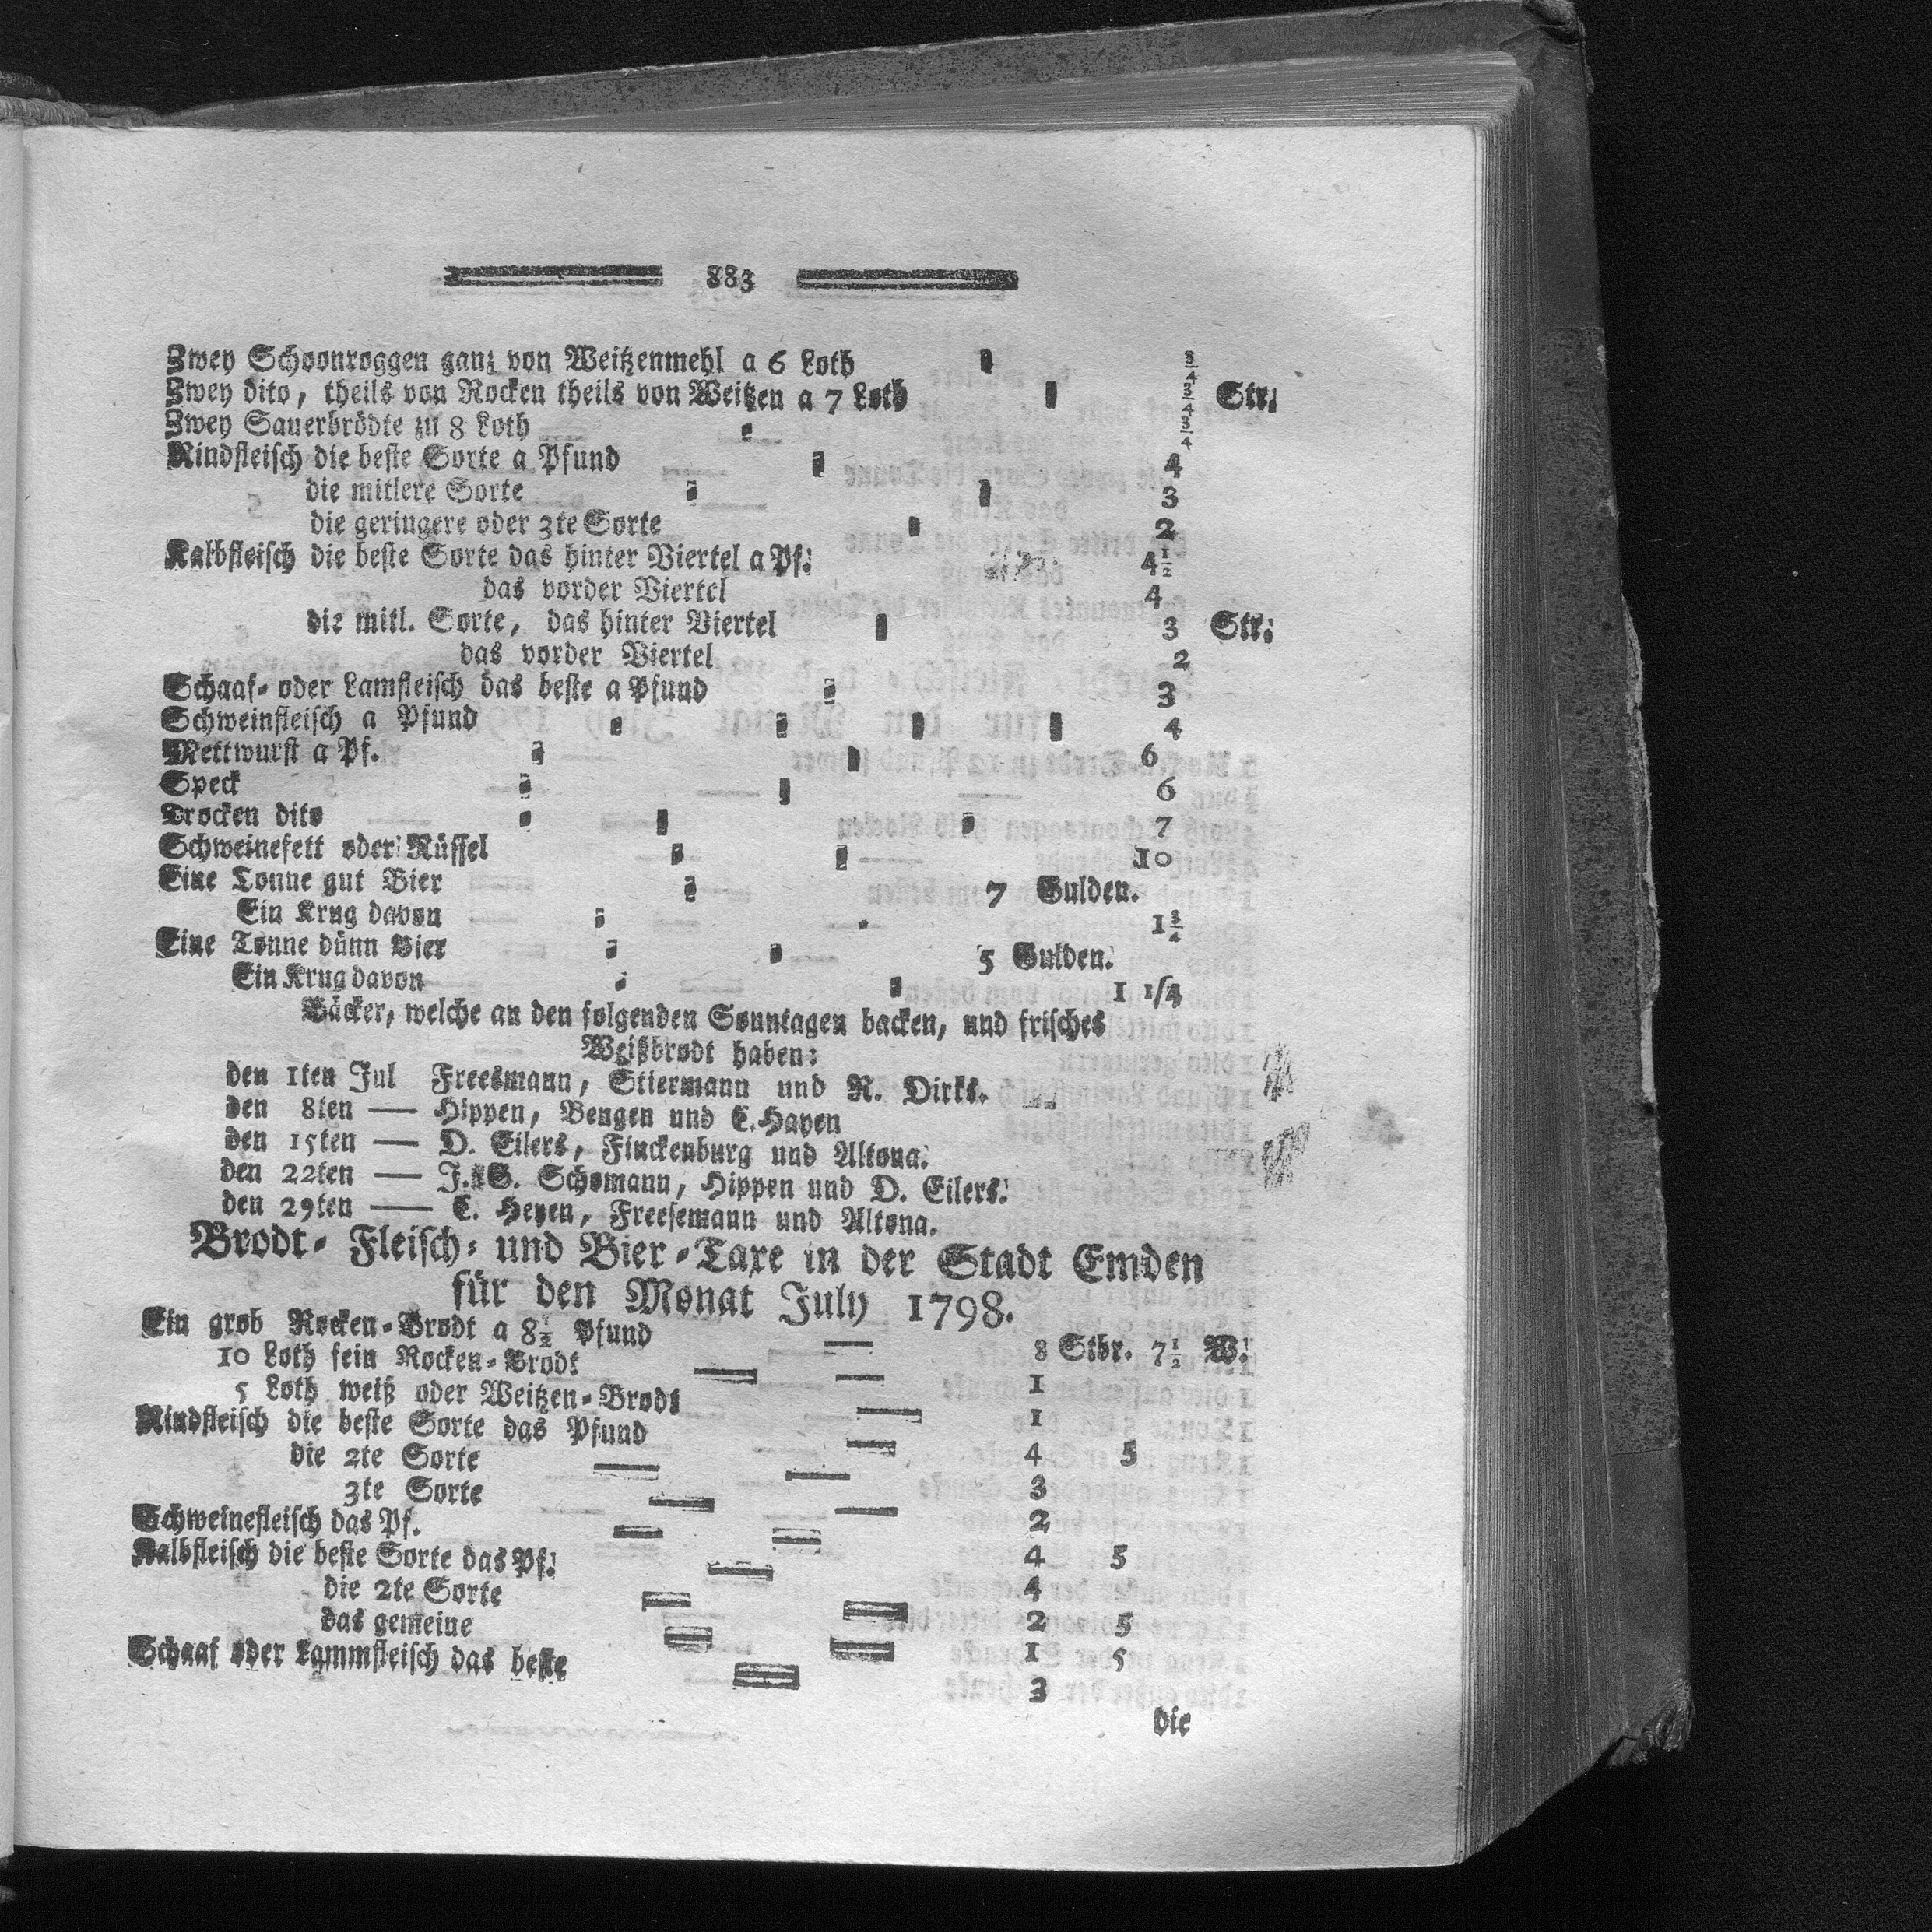 883
Zwey Schoonroggen ganz von Weitzenmehl a 6 Loth 3/4
Zwey dito, theils von Rocken theils von Weitzen a 7 Loth 3/4 Str.
Zwey Sauerbrödte zu 8 Loth 3/4
Rindfleisch die beste Sorte a Pfund 4
die mitlere Sorte 3
die geringere oder 3te Sorte 2
Kalbfleisch die beste Sorte das hinter Viertel a Pf. 4 1/2
das vorder Viertel 4
die mitl. Sorte, das hinter Viertel 3 Str.
das vorder Viertel 2
Schaaf- oder Lamfleisch das beste a Pfund 3
Schweinfleisch a Pfund 4
Mettwurst a Pf. 6
Speck 6
Trocken dito 7
Schweinefett oder Rüssel 10
Eine Tonne gut Bier 7 Gulden.
Ein Krug davon 1 3/4
Eine Tonne dünn Bier 5 Gulden.
Ein Krug davon 1 1/4
Bäcker, welche an den folgenden Sonntagen backen, und frisches
Weißbrodt haben:
den 1ten Jul Freesmann, Stiermann und R. Dirks.
den 8ten — Hippen, Bengen und C. Hayen
den 15ten — D. Eilers, Finckenburg und Altona.
den 22ten — J. G. Schomann, Hippen und D. Eilers.
den 29ten — C. Heyen, Freesemann und Altona.
Brodt- Fleisch- und Bier-Taxe in der Stadt Emden
für den Monat July 1798.
Ein grob Rocken-Brodt a 8 1/2 Pfund — 8 Stbr. 7 1/2 W.
10 Loth fein Rocken-Brodt — — 1
5 Loth weiß oder Weitzen-Brodt — 1
Rindfleisch die beste Sorte das Pfund — 4 5
die 2te Sorte — — 3
3te Sorte — — 2
Schweinefleisch das Pf. — — 4 5
Kalbfleisch die beste Sorte das Pf. — 4
die 2te Sorte — — 2 5
das gemeine — — 1 5
Schaaf oder Lammfleisch das beste — 3
die